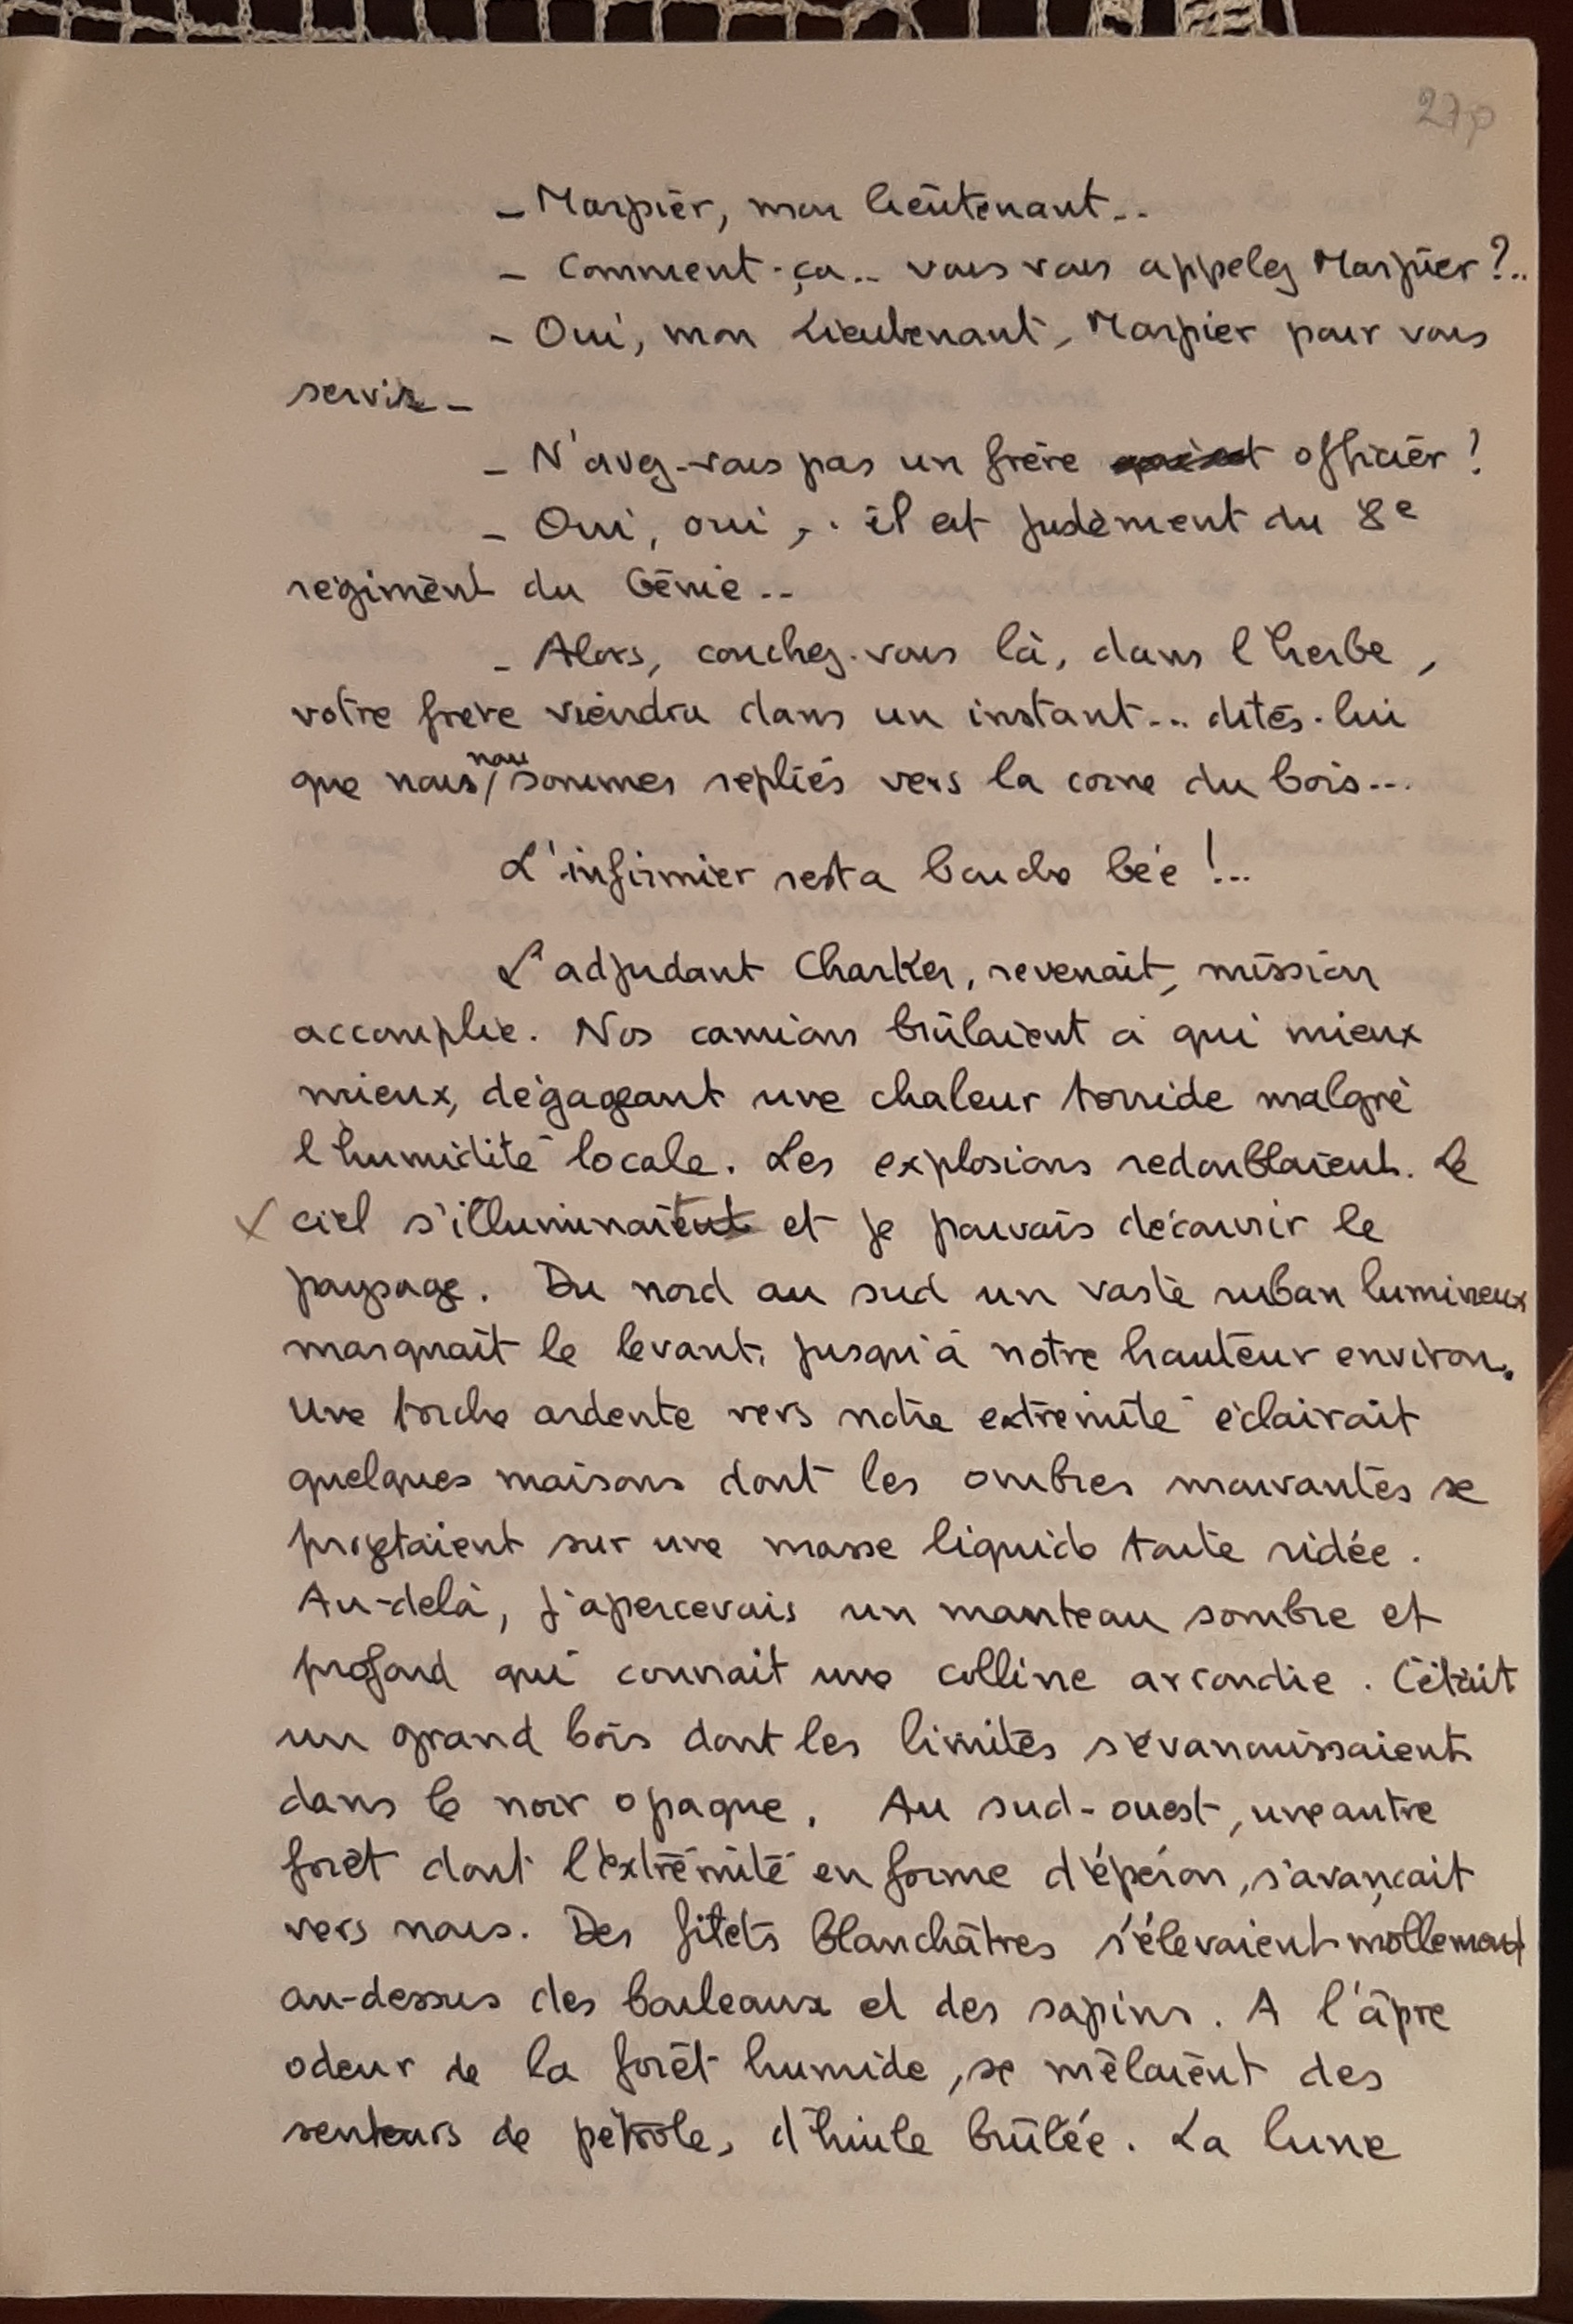 27p
- Marpier, mon lieutenant..
- Comment-ça.. vous vous appelez Marpier ?..
- Oui, mon Lieutenant, Marpier pour vous
servir -
- N'avez-vous pas un frère officier ?
- Oui, oui, . il est justement du 8e
régiment du Génie..
- Alors, couchez-vous là, dans l'herbe,
votre frère viendra dans un instant... dites-lui
que nous nous sommes repliés vers la corne du bois...
L'infirmier resta bouche bée !..
L'adjudant Charker, revenait, mission
accomplie. Nos camions brûlaient à qui mieux
mieux, dégageant une chaleur torride malgré
l'humidité locale. Les explosions redoublaient. Le
x ciel s'illuminait et je pouvais découvrir le
paysage. Du nord au sud un vaste ruban lumineux
marquait le levant, jusqu'à notre hauteur environ.
Une torche ardente vers notre extrémité éclairait
quelques maisons dont les ombres mouvantes se
projetaient sur une masse liquide toute ridée.
Au-delà, j'apercevais un manteau sombre et
profond qui couvrait une colline arrondie. C'était
un grand bois dont les limites s'évanouissaient
dans le noir opaque. Au sud-ouest, une autre
forêt dont l'extrémité en forme d'éperon, s'avançait
vers nous. Des filets blanchâtres s'élevaient mollement
au-dessus des bouleaux et des sapins. A l'âpre
odeur de la forêt humide, se mêlaient des
senteurs de pétrole, d'huile brûlée. La lune